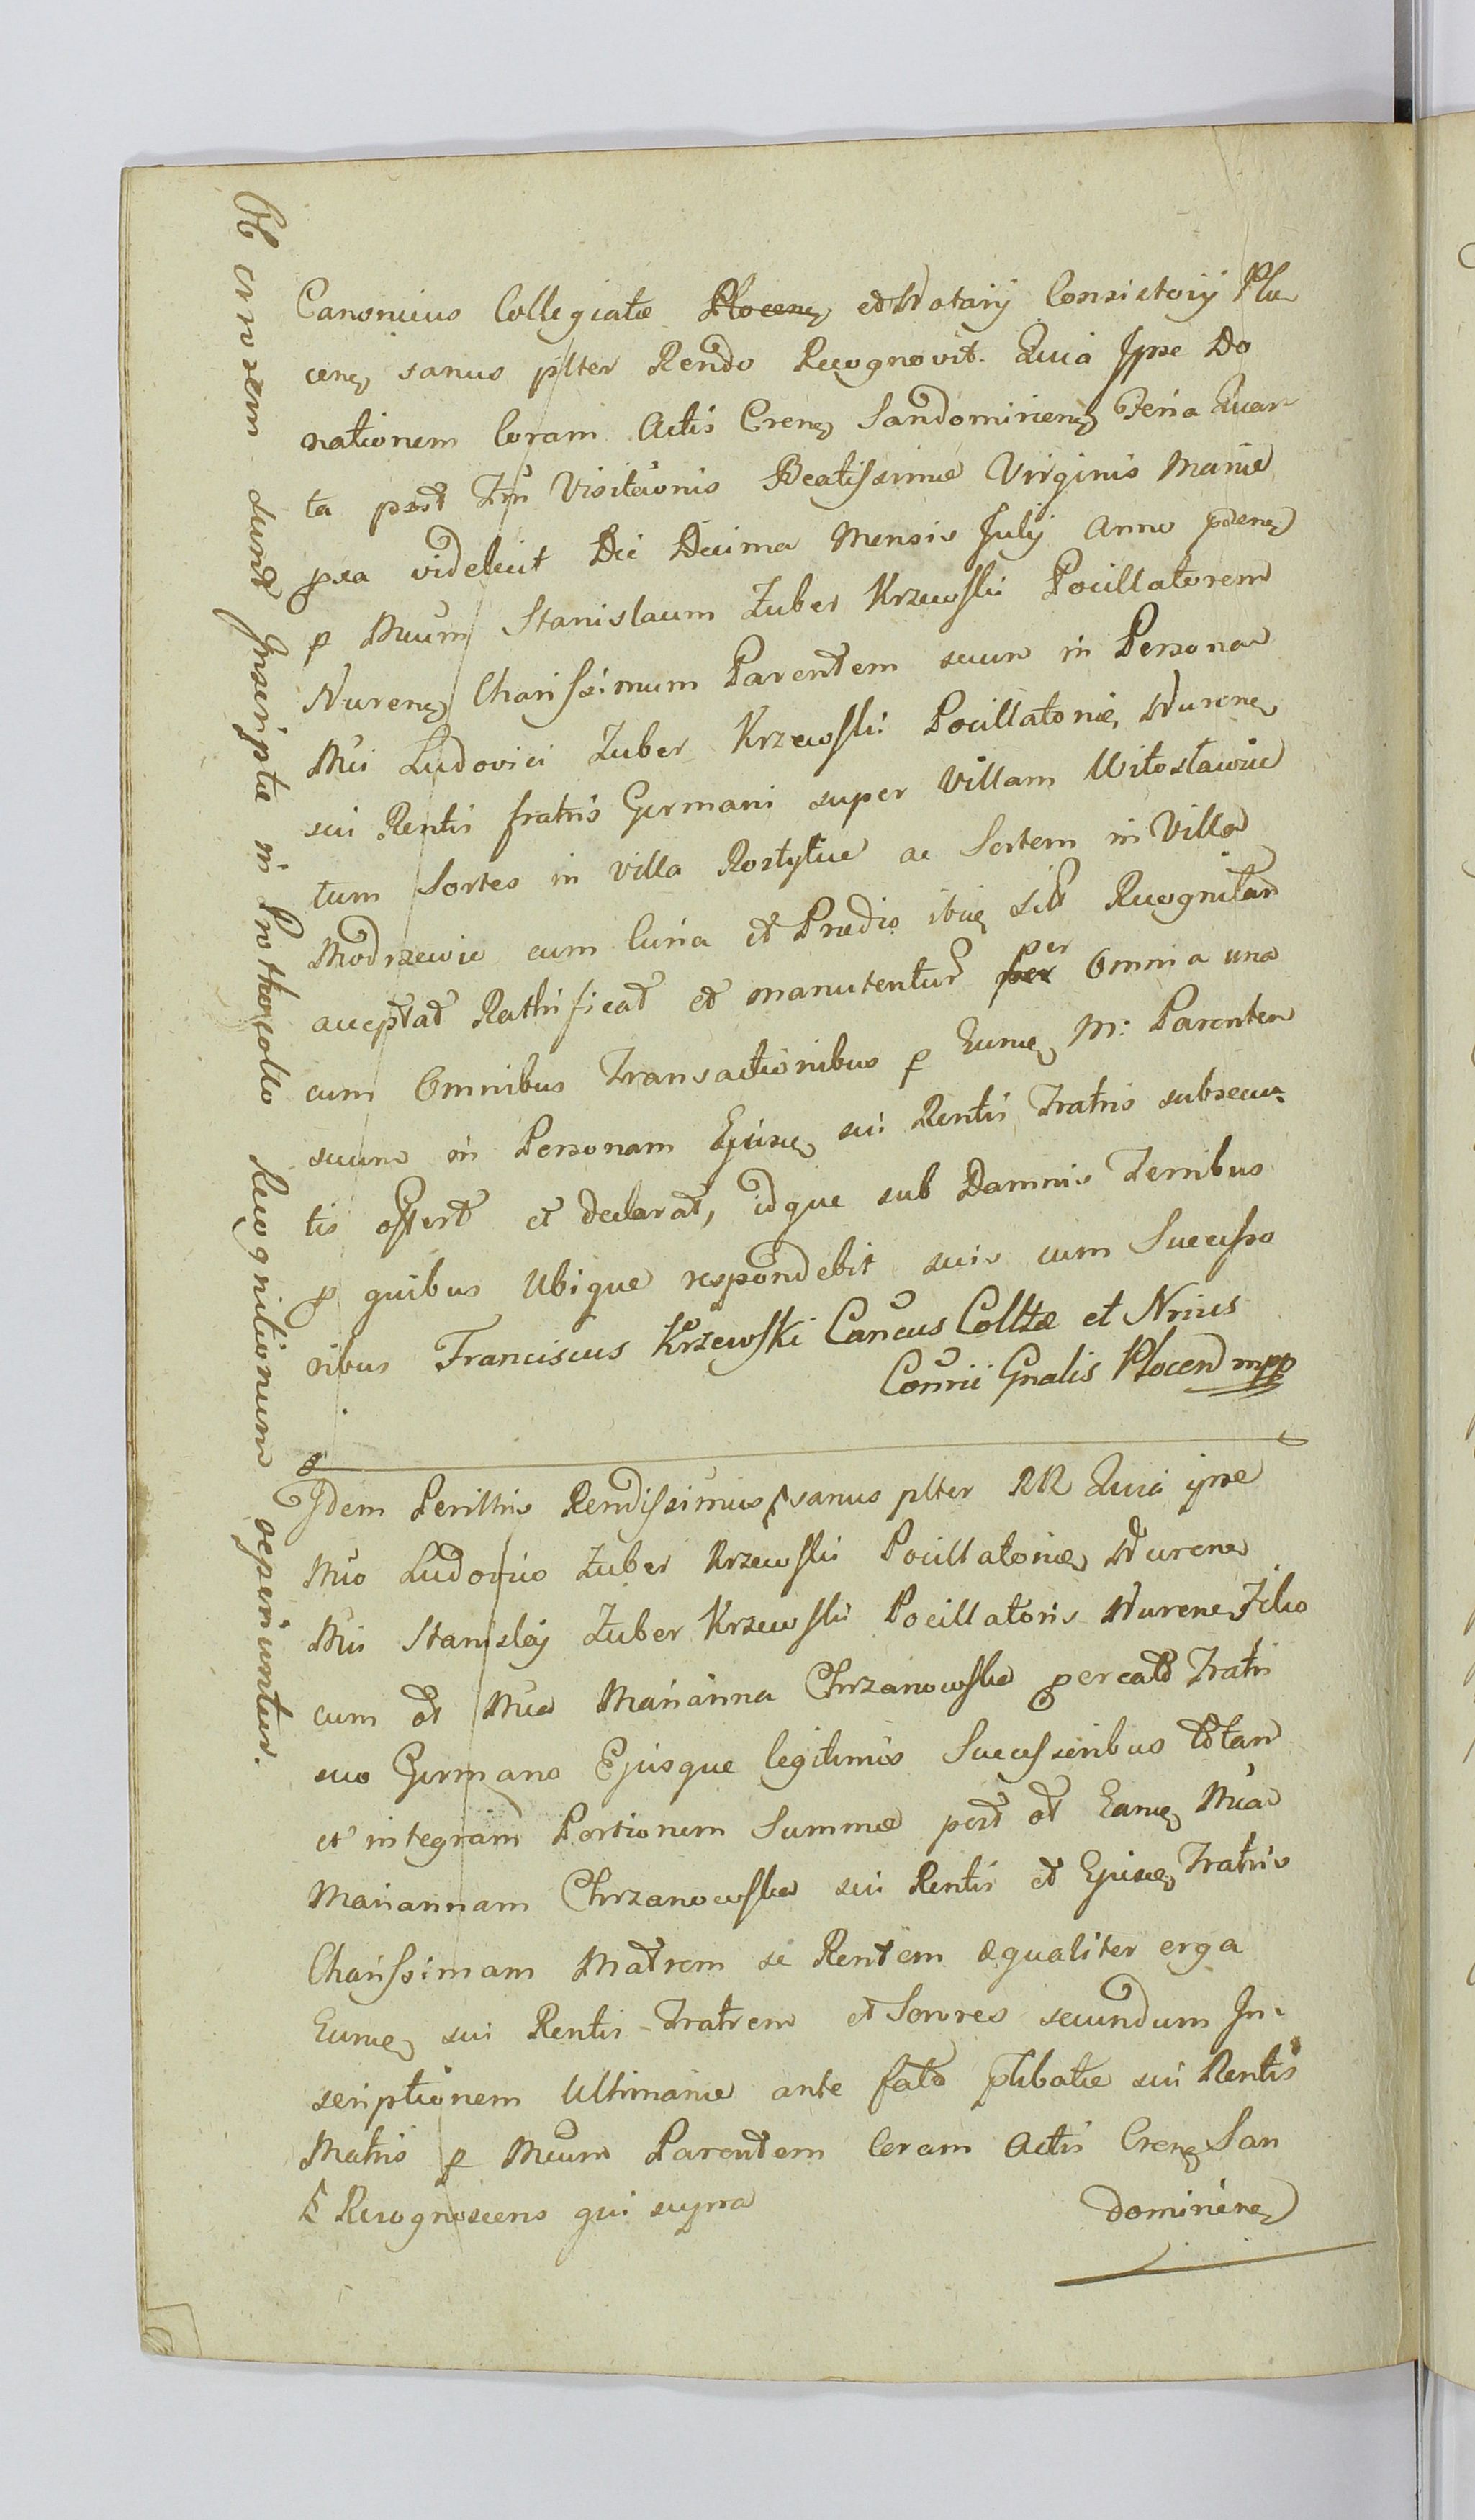 Canonicus Collegiatæ Plocens et Notarÿ Consistorÿ Plo
cens sanus plter Rendo Recognovit. Quia Jpse Do
nationem Coram Actis Crens Sandomiriens Feria Quar
ta post Ftm Visitãonis Beatissimæ Virginis Mariæ
pxa videlicit Die Decima Mensis Julÿ Anno pdens
p Mcum Stanislaum Zuber Krzewski Pocillatorem
Nurens Charissimum Parentem suum in Persona
Mci Ludovici Zuber Krzewski Pocillatoriæ Nurens
sui Rentis fratris Germani super Villam Witosławice
tum Sortes in villa Rostytuce ac Sortem in Villa
Modrzewie cum Curia et Prædio ibiq sibi Recognitam
acceptat Rathificat et manutentur per Omnia una
cum Omnibus Transactionibus p Eumq M: Parentem
suum in Personam Ejusq sui Rentis Fratris subsecu-
tis offert et declarat, idque sub Damnis Terribus
p quibus Ubique respondebit suis cum Successo
ribus Franciscus Krzewski Cancus Colltæ et Nrius
Connii Gnalis Plocen mpp
Jdem Perillris Rendissimus ſ sanus plter RR Quia ipse
Mco Ludovico Zuber Krzewski Pocillatoriæ Nurens
Mci Stanislaj Zuber Krzewski Pocillatoris Nurens Filio
cum ot Mca Marianna Chrzanowska percato Fratri
suo Germano Ejusque legitimis Successoribus totam
et integram Portionem Summæ post ot Eamq Mca
Mariannam Chrzanowska sui Rentis et Ejusq Fratris
Charissimam Matrem se Rentem æqualiter erga
Eumq sui Rentis Fratrem et Sorores secundum Jn-
scriptionem Ultimariæ ante fata plibatæ sui Rentis
Matris p Mcum Parentem Coram Actis Crens San
ſ Recognoscens qui supra
domiriens
Ob crossem sunt Jnscriptæ in Prothocollo Recognitionum aperiuntur.